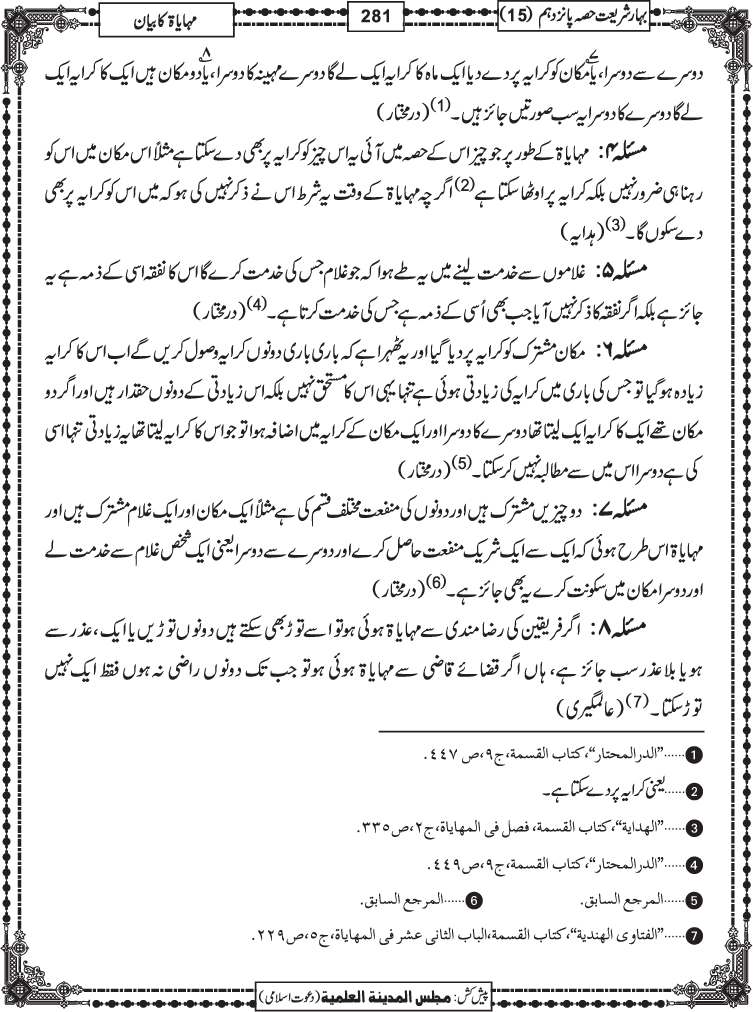 بہارِ شریعت حصہ پانزدہم (15)
281
مہایاۃ کا بیان
دوسرے سے دوسرا، ۷ یا مکان کو کرایہ پر دے دیا ایک ماہ کا کرایہ ایک لے گا دوسرے مہینہ کا دوسرا، ۸ یا دو مکان ہیں ایک کا کرایہ ایک
لے گا دوسرے کا دوسرا یہ سب صورتیں جائز ہیں۔(1) (درمختار)
مسئلہ ۴: مہایاۃ کے طور پر جو چیز اس کے حصہ میں آئی یہ اس چیز کو کرایہ پر بھی دے سکتا ہے مثلاً اس مکان میں اس کو
رہنا ہی ضرور نہیں بلکہ کرایہ پر اوٹھا سکتا ہے(2) اگرچہ مہایاۃ کے وقت یہ شرط اس نے ذکر نہیں کی ہو کہ میں اس کو کرایہ پر بھی
دے سکوں گا۔(3) (ہدایہ)
مسئلہ ۵: غلاموں سے خدمت لینے میں یہ طے ہوا کہ جو غلام جس کی خدمت کرے گا اس کا نفقہ اسی کے ذمہ ہے یہ
جائز ہے بلکہ اگر نفقہ کا ذکر نہیں آیا جب بھی اُسی کے ذمہ ہے جس کی خدمت کرتا ہے۔(4) (درمختار)
مسئلہ ۶: مکان مشترک کو کرایہ پر دیا گیا اور یہ ٹھہرا ہے کہ باری باری دونوں کرایہ وصول کریں گے اب اس کا کرایہ
زیادہ ہوگیا تو جس کی باری میں کرایہ کی زیادتی ہوئی ہے تنہا یہی اس کا مستحق نہیں بلکہ اس زیادتی کے دونوں حقدار ہیں اور اگر دو
مکان تھے ایک کا کرایہ ایک لیتا تھا دوسرے کا دوسرا اور ایک مکان کے کرایہ میں اضافہ ہوا تو جو اس کا کرایہ لیتا تھا یہ زیادتی تنہا اسی
کی ہے دوسرا اس میں سے مطالبہ نہیں کرسکتا۔(5) (درمختار)
مسئلہ ۷: دو چیزیں مشترک ہیں اور دونوں کی منفعت مختلف قسم کی ہے مثلاً ایک مکان اور ایک غلام مشترک ہیں اور
مہایاۃ اس طرح ہوئی کہ ایک سے ایک شریک منفعت حاصل کرے اور دوسرے سے دوسرا یعنی ایک شخص غلام سے خدمت لے
اور دوسرا مکان میں سکونت کرے یہ بھی جائز ہے۔(6) (درمختار)
مسئلہ ۸: اگر فریقین کی رضامندی سے مہایاۃ ہوئی ہو تو اسے توڑ بھی سکتے ہیں دونوں توڑیں یا ایک، عذر سے
ہو یا بلا عذر سب جائز ہے، ہاں اگر قضائے قاضی سے مہایاۃ ہوئی ہو تو جب تک دونوں راضی نہ ہوں فقط ایک نہیں
توڑ سکتا۔(7) (عالمگیری)
1 ......"الدرالمختار"، کتاب القسمة، ج۹، ص ٤٤٧.
2 ......یعنی کرایہ پر دے سکتا ہے۔
3 ......"الهداية"، کتاب القسمة، فصل فی المهایاة، ج٢، ص٣٣٥.
4 ......"الدرالمختار"، کتاب القسمة، ج۹، ص٤٤٩.
5 ......المرجع السابق. 6 ......المرجع السابق.
7 ......"الفتاوی الهندية"، کتاب القسمة، الباب الثانی عشر فی المهایاة، ج٥، ص٢٢٩.
پیش کش: مجلس المدینۃ العلمیۃ (دعوت اسلامی)